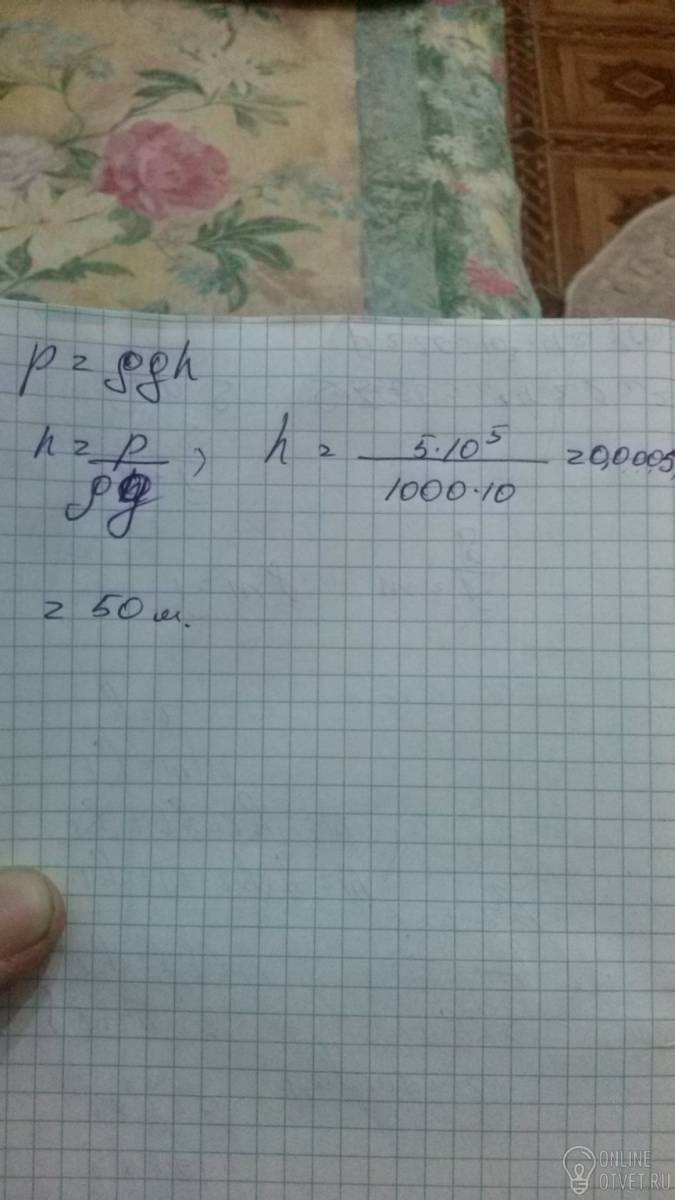 p = ρgh
h = p/ρg ; h = 5·10⁵/1000·10 = 0,0005
= 50 м.
ONLINE
OTVET.RU